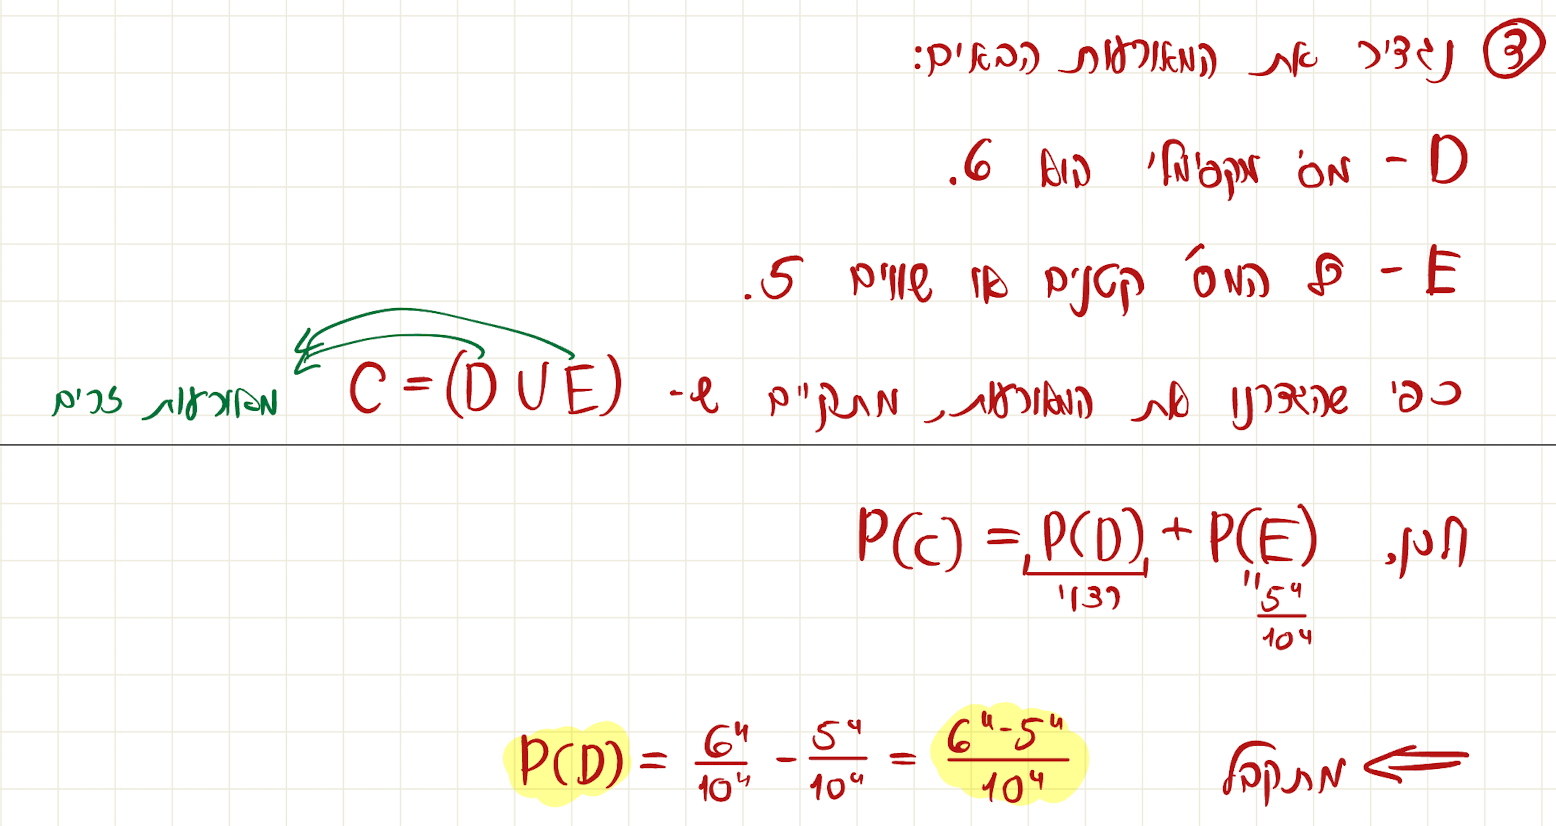 ③ נגדיר את המאורעות הבאים:
D - מס' מקסימלי הוא 6.
E - כל המס' קטנים או שווים 5.
כפי שהגדרנו את המאורעות, מתקיים ש- C = (D ∪ E) מאורעות זרים
לכן, P(C) = P(D) + P(E)
רצוי
" 5⁴/10⁴
⇐ מתקבל P(D) = 6⁴/10⁴ - 5⁴/10⁴ = (6⁴-5⁴)/10⁴